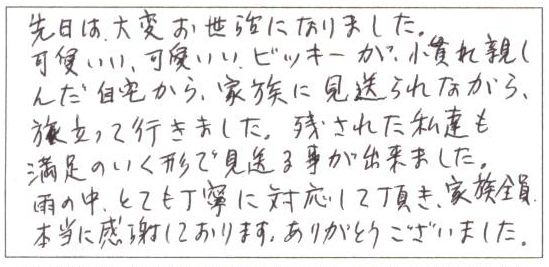 先日は、大変お世話になりました。
可愛いい、可愛いい、ビッキーが、小慣れ親し
んだ自宅から、家族に見送られながら、
旅立って行きました。残された私達も
満足のいく形で見送る事が出来ました。
雨の中、とても丁寧に対応して頂き、家族全員
本当に感謝しております。ありがとうございました。